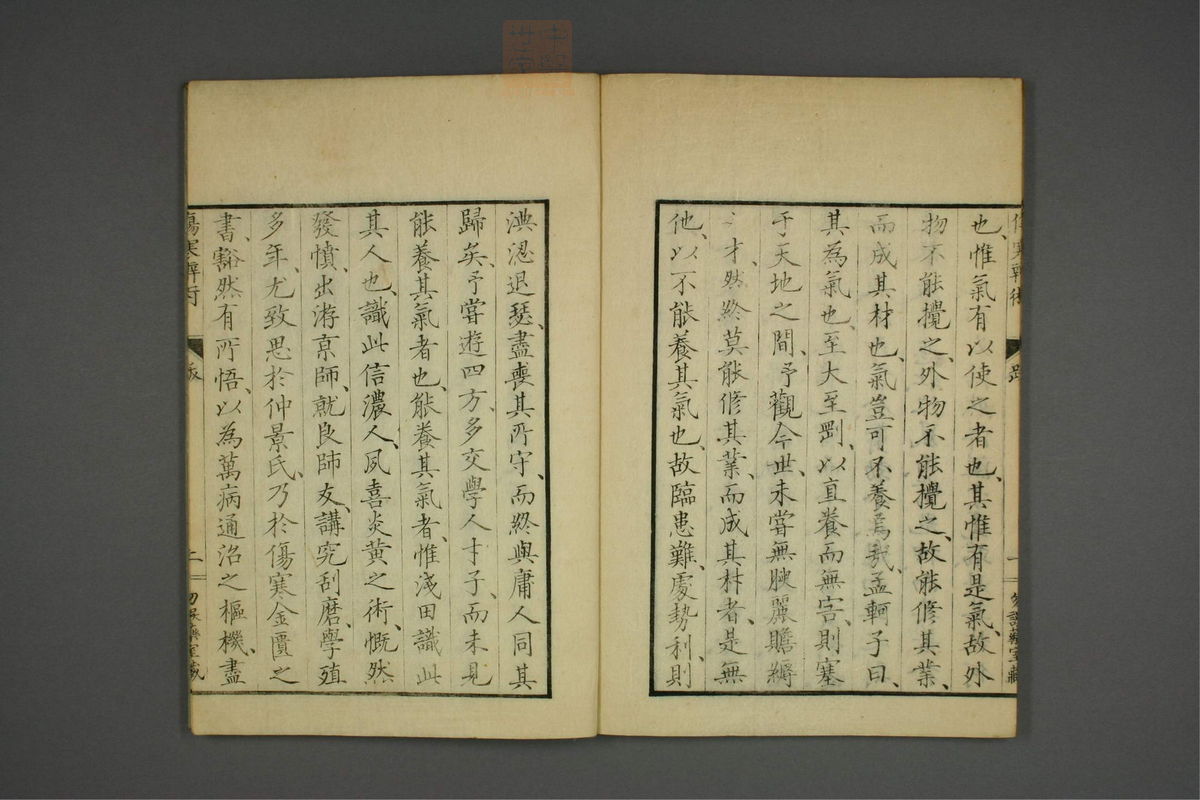 也、惟氣有以使之者也、其惟有是氣、故外
物不能攪之、外物不能攪之、故能脩其業、
而成其材也、氣豈可不養焉哉、孟軻子曰、
其為氣也、至大至剛、以直養而無害、則塞
于天地之間、予觀今世、未嘗無腴麗贍縟
才、然終莫能脩其業、而成其材者、是無
他、以不能養其氣也、故臨患難、處勢利、則
淟涊退瑟、盡喪其所守、而終與庸人同其
歸矣、予嘗遊四方、多交學人才子、而未見
能養其氣者也、能養其氣者、惟淺田識此
其人也、識此信濃人、夙喜炎黃之術、慨然
發憤、出游京師、就良師友、講究刮磨、學殖
多年、尤致思於仲景氏、乃於傷寒金匱之
書、豁然有所悟、以為萬病通治之樞機、盡
傷寒辨術
跋
二
勿誤藥室藏